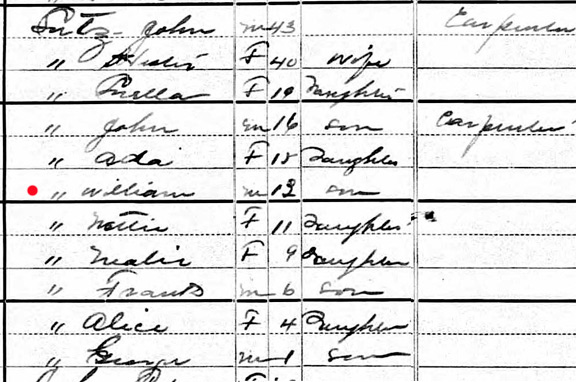 Lutz John m 43 Carpenter
" F 40 wife
" Luella F 19 Daughter
" John m 16 son Carpenter
" Ada F 18 Daughter
" William m 13 son
" Nettie F 11 Daughter
" F 9 Daughter
" Frank m 6 son
" Alice F 4 Daughter
" George m 1 son